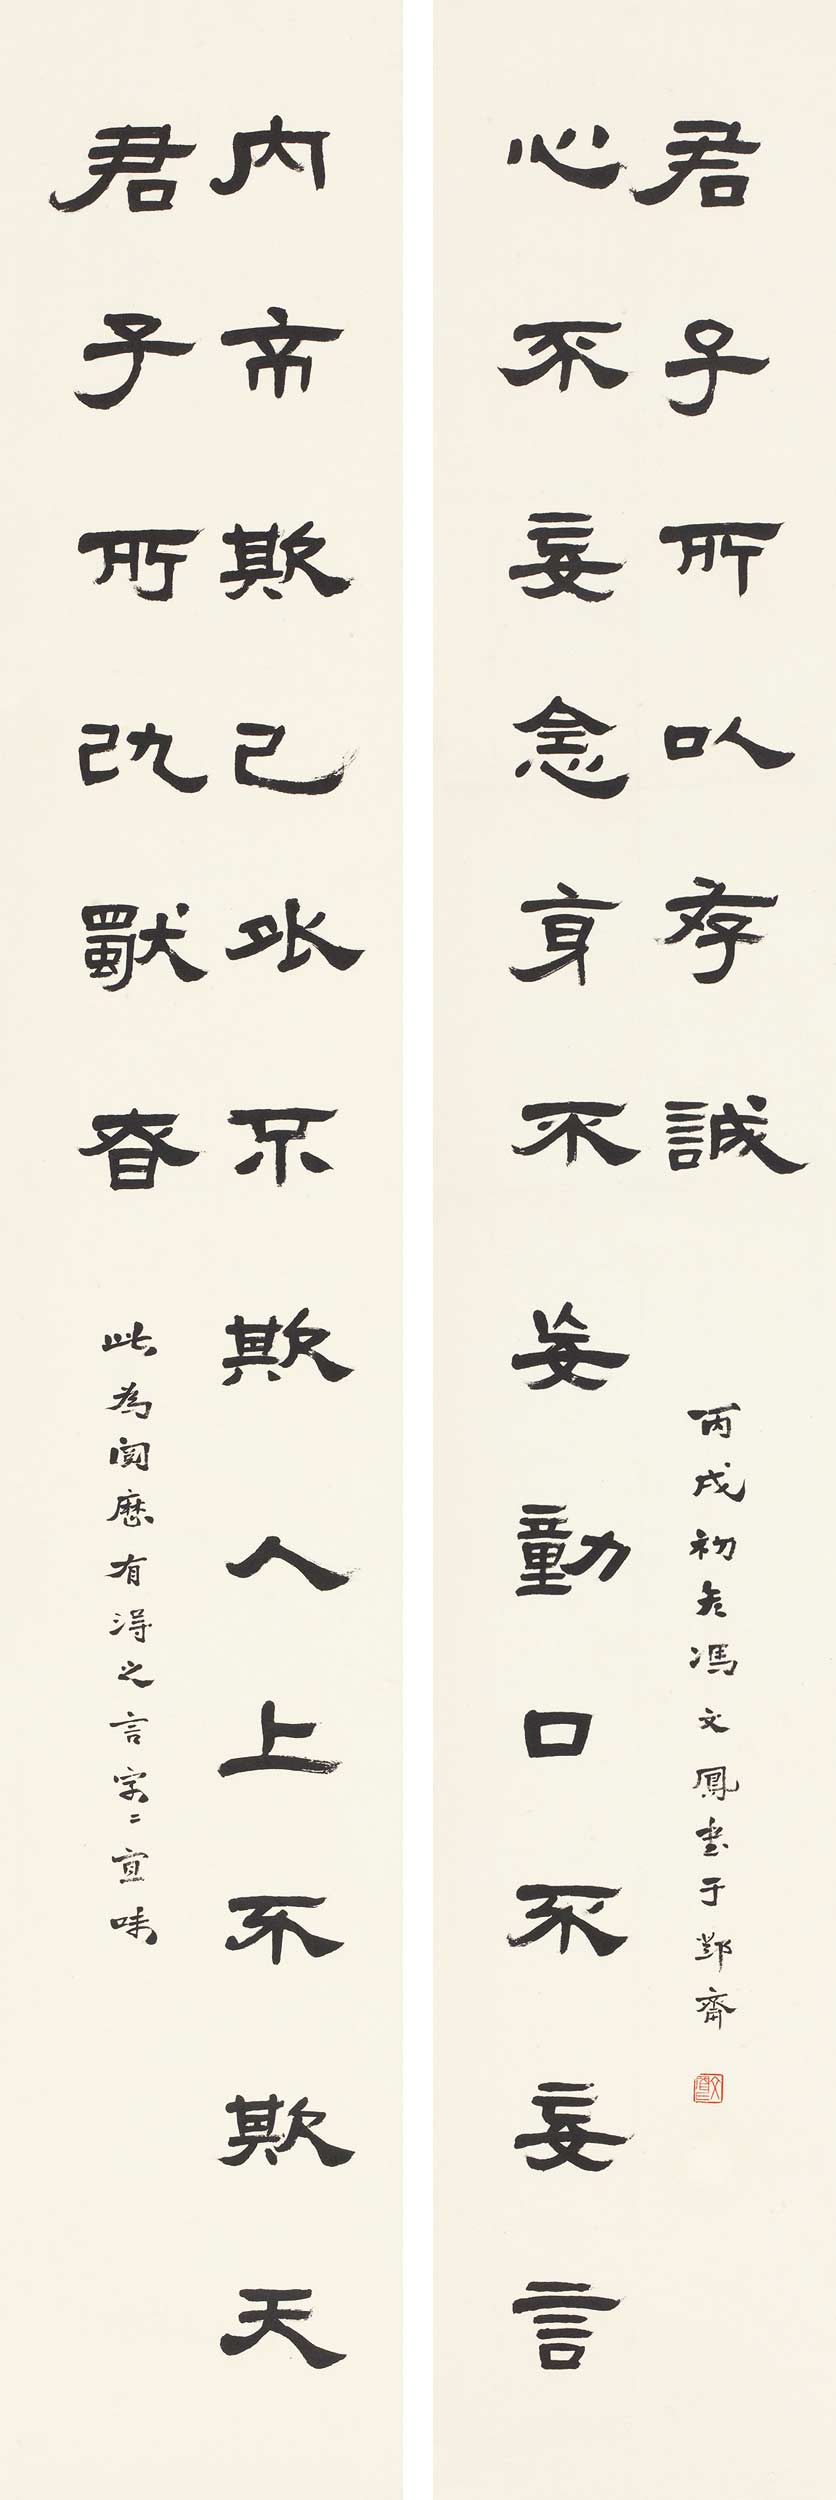 心不妄念身不妄動口不妄言
君子所以存誠
丙戌初冬馮文鳳書于鄴齋
內不欺己外不欺人上不欺天
君子所以獨眘
此為閱歷有得之言字〻宜味